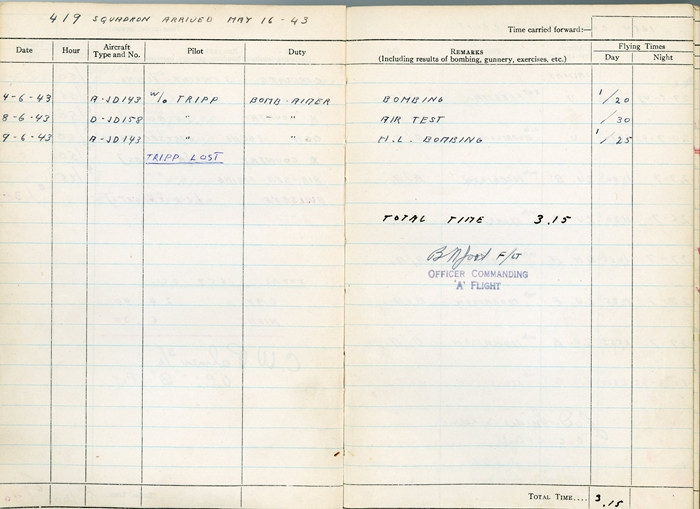 419 SQUADRON ARRIVED MAY 16-43
Time carried forward:—
Date Hour Aircraft Type and No. Pilot Duty REMARKS (Including results of bombing, gunnery, exercises, etc.) Flying Times Day Night
4-6-43 A-JD143 W/O TRIPP BOMB-AIMER BOMBING 1/20
8-6-43 D-JD158 " " AIR TEST /30
9-6-43 A-JD143 " " H.L. BOMBING 1/25
TRIPP LOST
TOTAL TIME 3.15
F/LT
OFFICER COMMANDING
'A' FLIGHT
TOTAL TIME.... 3.15